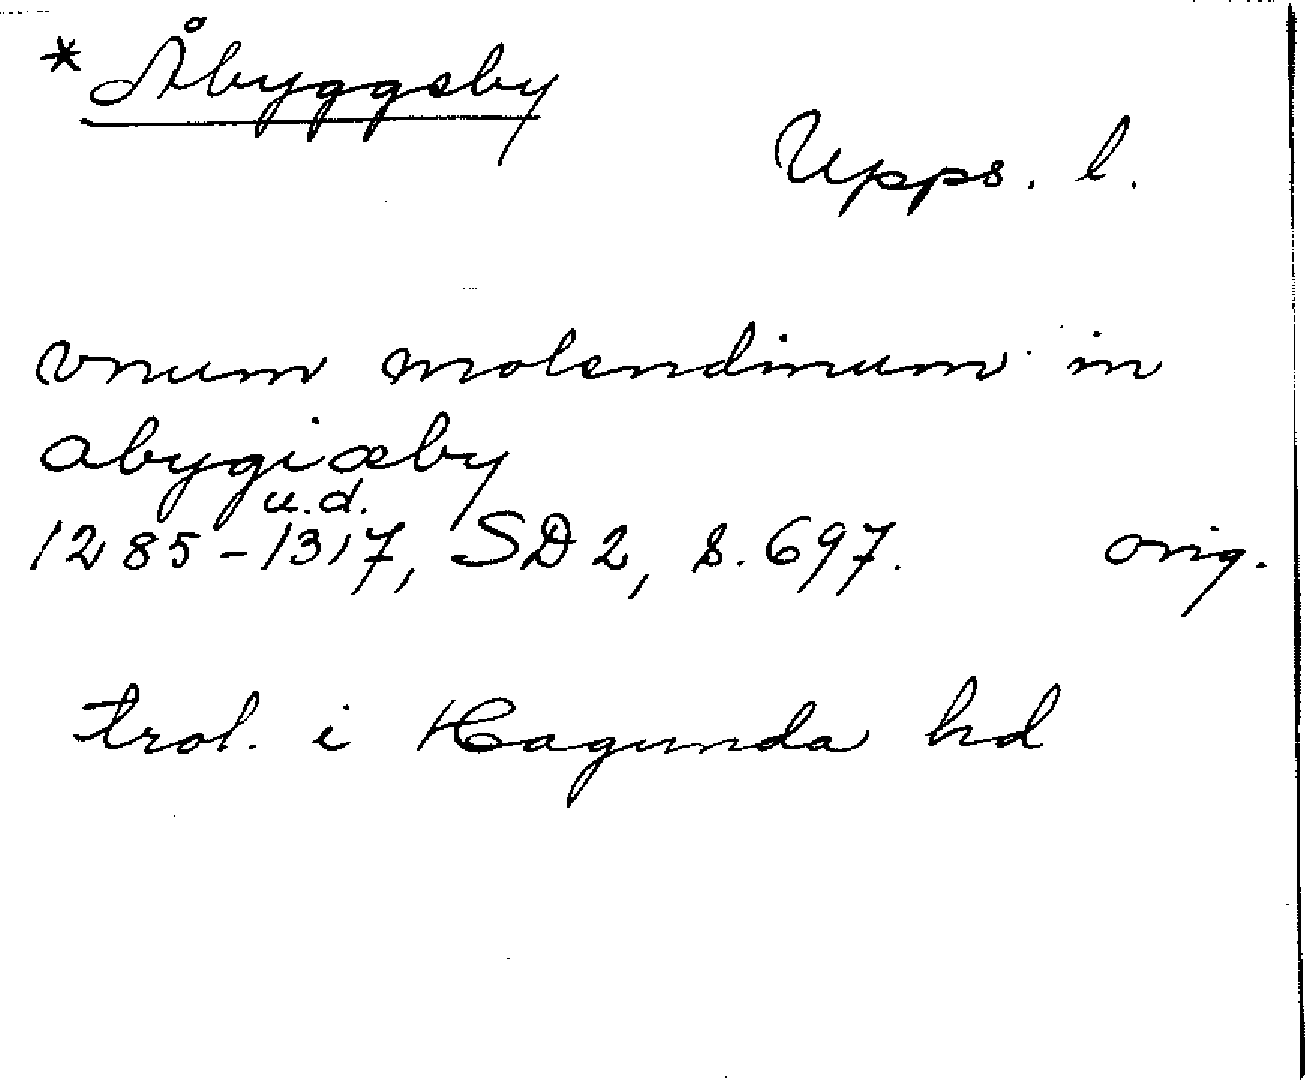 *Åbyggeby
Upps. l.
vnum molendinum in
abygiæby
u.d.
1285-1317, SD 2, s. 697. orig.
trol. i Hagunda hd